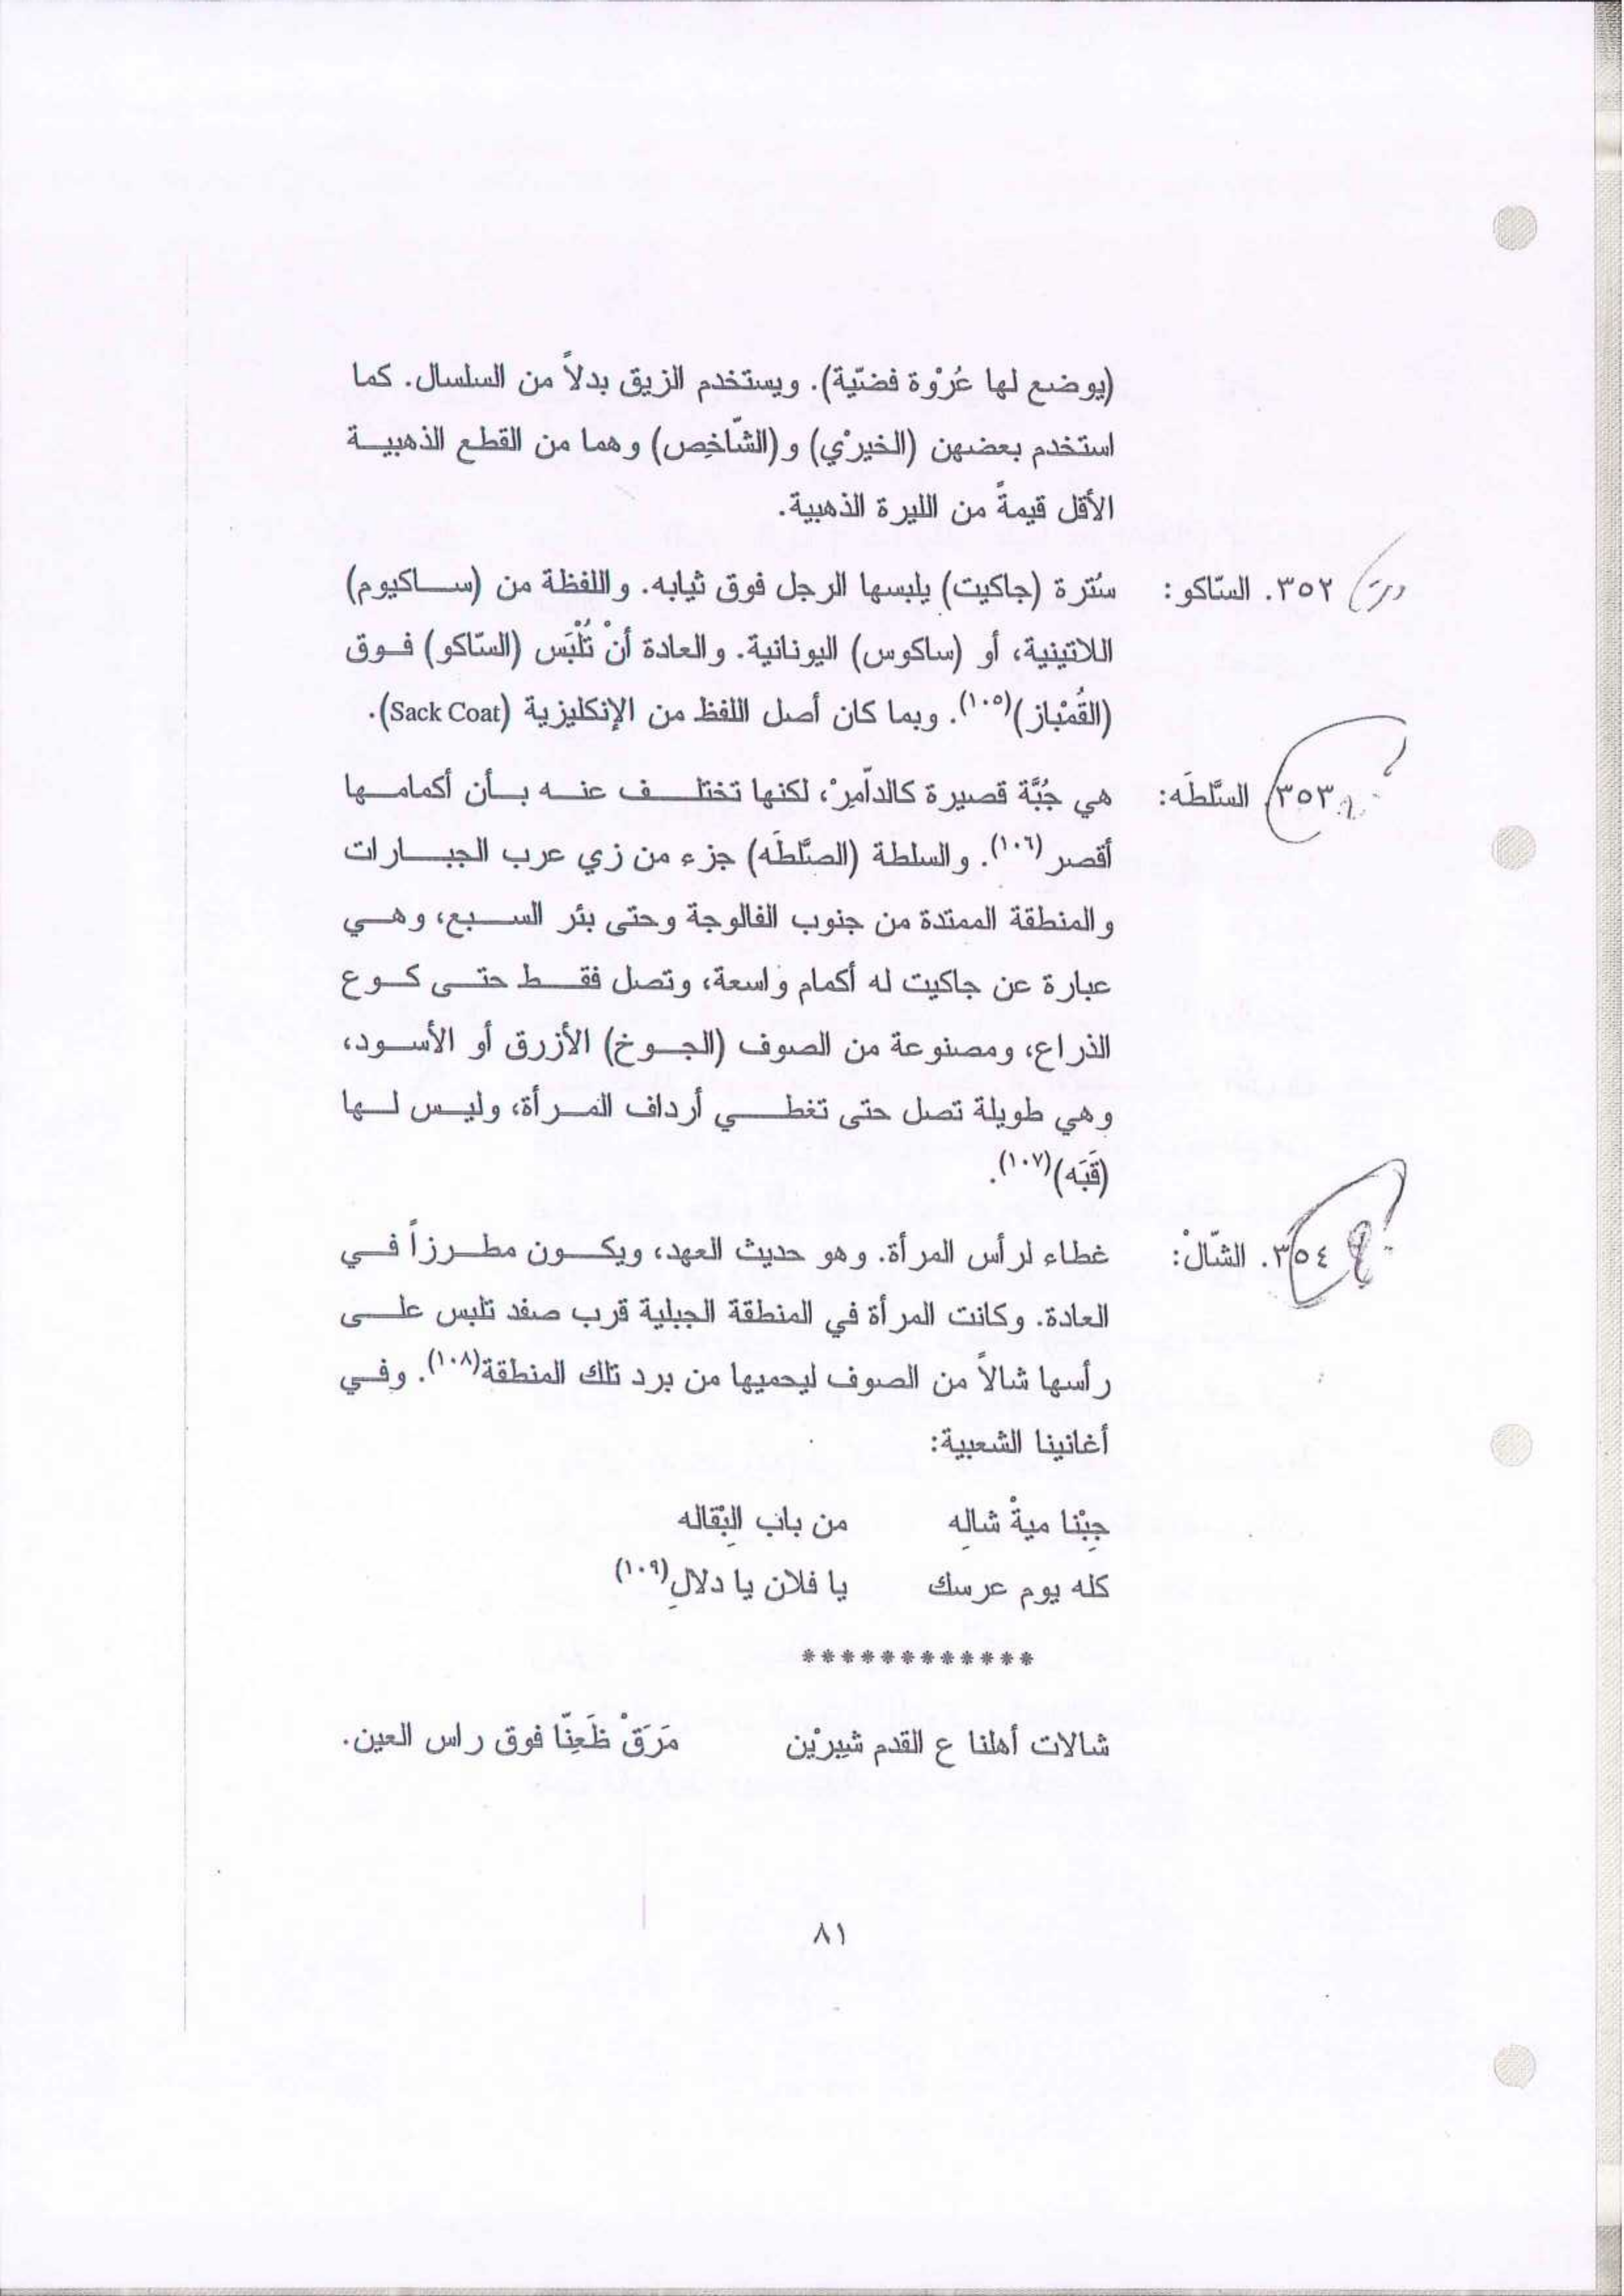 (يوضع لها عُرْوة فضّية). ويستخدم الزيق بدلاً من السلسال. كما
استخدم بعضهن (الخيرْي) و(الشّاخِص) وهما من القطع الذهبية
الأقل قيمةً من الليرة الذهبية.
٣٥٢. السّاكو: سُترة (جاكيت) يلبسها الرجل فوق ثيابه. واللفظة من (ساكيوم)
اللاتينية، أو (ساكوس) اليونانية. والعادة أنْ تُلْبَس (السّاكو) فوق
(القُمْباز)(١٠٥). وبما كان أصل اللفظ من الإنكليزية (Sack Coat).
٣٥٣. السَّلطَه: هي جُبَّة قصيرة كالدّامِرْ، لكنها تختلف عنه بأن أكمامها
أقصر (١٠٦). والسلطة (الصَّلطَه) جزء من زي عرب الجبارات
والمنطقة الممتدة من جنوب الفالوجة وحتى بئر السبع، وهي
عبارة عن جاكيت له أكمام واسعة، وتصل فقط حتى كوع
الذراع، ومصنوعة من الصوف (الجوخ) الأزرق أو الأسود،
وهي طويلة تصل حتى تغطي أرداف المرأة، وليس لها
(قَبَه)(١٠٧).
٣٥٤. الشّالْ: غطاء لرأس المرأة. وهو حديث العهد، ويكون مطرزاً في
العادة. وكانت المرأة في المنطقة الجبلية قرب صفد تلبس على
رأسها شالاً من الصوف ليحميها من برد تلك المنطقة(١٠٨). وفي
أغانينا الشعبية:
جِبْنا ميةْ شالِه من باب البِْقاله
كله يوم عرسك يا فلان يا دلالِ(١٠٩)
************
شالات أهلنا ع القدم شبِرْين مَرَقْ ظَعِنّا فوق راس العين.
٨١